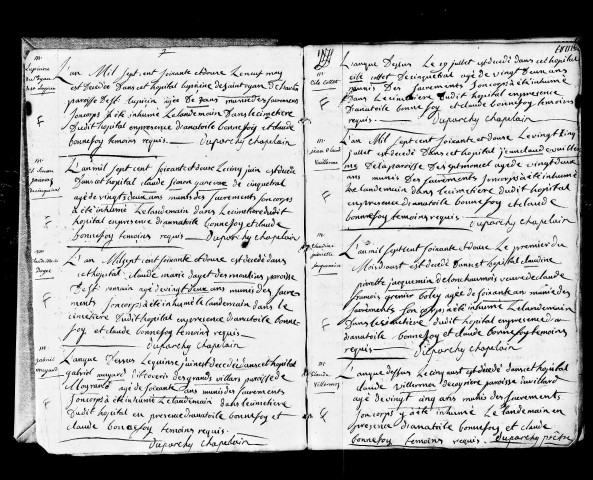 L'an Mil Sept cent Soixante et douze Le neuf may
est Decedée Dans cet hopital
paroisse De St lupicin agée De munie des Sacremens
Son corps a été inhumé Le landemain Dans le cimetiere
Dudit hopital en presence dianatoile bonnefoy et claude
bonnefoy temoins requis — Duparchy chapelain
L'an mil Sept cent Soixante et douze Le cinq juin est decedé
Dans cet hopital claude Simon de cinquetral
agé de vingt deux ans munis des Sacremens Son corps
a été inhumé Le landemain dans Le cimetiere dudit
hopital en presence dianatoile bonnefoy et claude
bonnefoy temoins requis — Duparchy chapelain
claude marie
L'an Mil Sept cent Soixante et douze est decedé dans
cet hopital claude marie des moulins paroisse
De St romain agé de vingt deux ans munis des Sacre-
mens Son corps a été inhumé le landemain dans le
cimetiere Dudit hopital en presence dianatoile bonne-
foy et claude bonnefoy temoins requis
Duparchy chapelain
gabriel
L'an que Dessus Le quinze juin est decedé dans cet hopital
gabriel des grands villars paroisse de
agé de Soixante ans munis des Sacremens
Son corps a été inhumé Le landemain dans le cimetiere
Dudit hopital en presence dianatoile bonnefoy et
claude bonnefoy temoins requis.
Duparchy chapelain
L'an que Dessus Le 19 juillet est decedé Dans cet hopital
De cinquetral agé de vingt deux ans
munis Des Sacremens Son corps a été inhumé
Dans Le cimetiere dudit hopital en presence
Dianatoile bonnefoy et claude bonnefoy temoins
requis. Duparchy chapelain
jean claude
L'an Mil Sept cent Soixante et douze Le vingt cinq
juillet est decedé Dans cet hopital jean claude
De la paroisse De agé de vingt deux
ans munis Des Sacremens Son corps a été inhumé
Le landemain dans Le cimetiere dudit hopital
en presence dianatoile bonnefoy et claude
bonnefoy temoins requis — Duparchy chapelain
claudine
pierrette
jacquemin
L'an mil Sept cent Soixante et douze Le premier du
Mois d'aoust est decedée Dans cet hopital claudine
pierrette jacquemin de veuve de claude
françois grenier boley agée de Soixante ans munie des
Sacremens Son corps a été inhumé Le landemain
Dans Le cimetiere dudit hopital en presence dia-
natoile bonnefoy et claude bonnefoy temoins
requis — Duparchy chapelain
claude
villermoz
L'an que dessus Le cinq aust est decedé dans cet hopital
claude villermoz de paroisse
agé de vingt cinq ans munis des Sacremens
Son corps y a été inhumé Le landemain en
presence dianatoile bonnefoy et claude
bonnefoy temoins requis. Duparchy prêtre